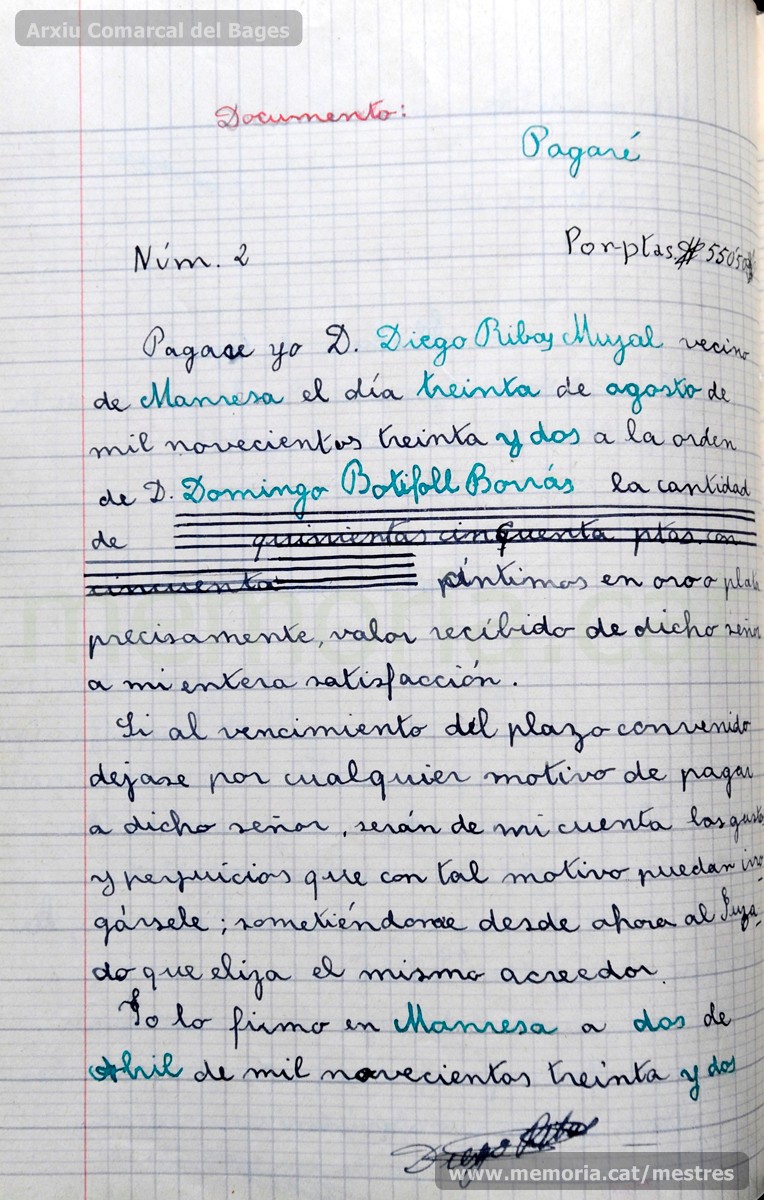 Arxiu Comarcal del Bages
Documento:
Pagaré
Núm. 2 Por ptas. # 550'50 #
Pagare yo D. Diego Ribas Mujal vecino
de Manresa el día treinta de agosto de
mil novecientos treinta y dos a la orden
de D. Domingo Botifoll Borrás la cantidad
de quinientas cinquenta ptas. con
cincuenta céntimos en oro o plata
precisamente, valor recíbido de dicho señor
a mi entera satisfacción.
Si al vencimiento del plazo convenido
dejase por cualquier motivo de pagar
a dicho señor, serán de mi cuenta los gastos
y perjuicios que con tal motivo puedan irro
gársele; sometiéndome desde ahora al Juzga
do que elija el mismo acreedor.
Yo lo firmo en Manresa a dos de
Abril de mil novecientos treinta y dos
Diego Ribas
www.memoria.cat/mestres